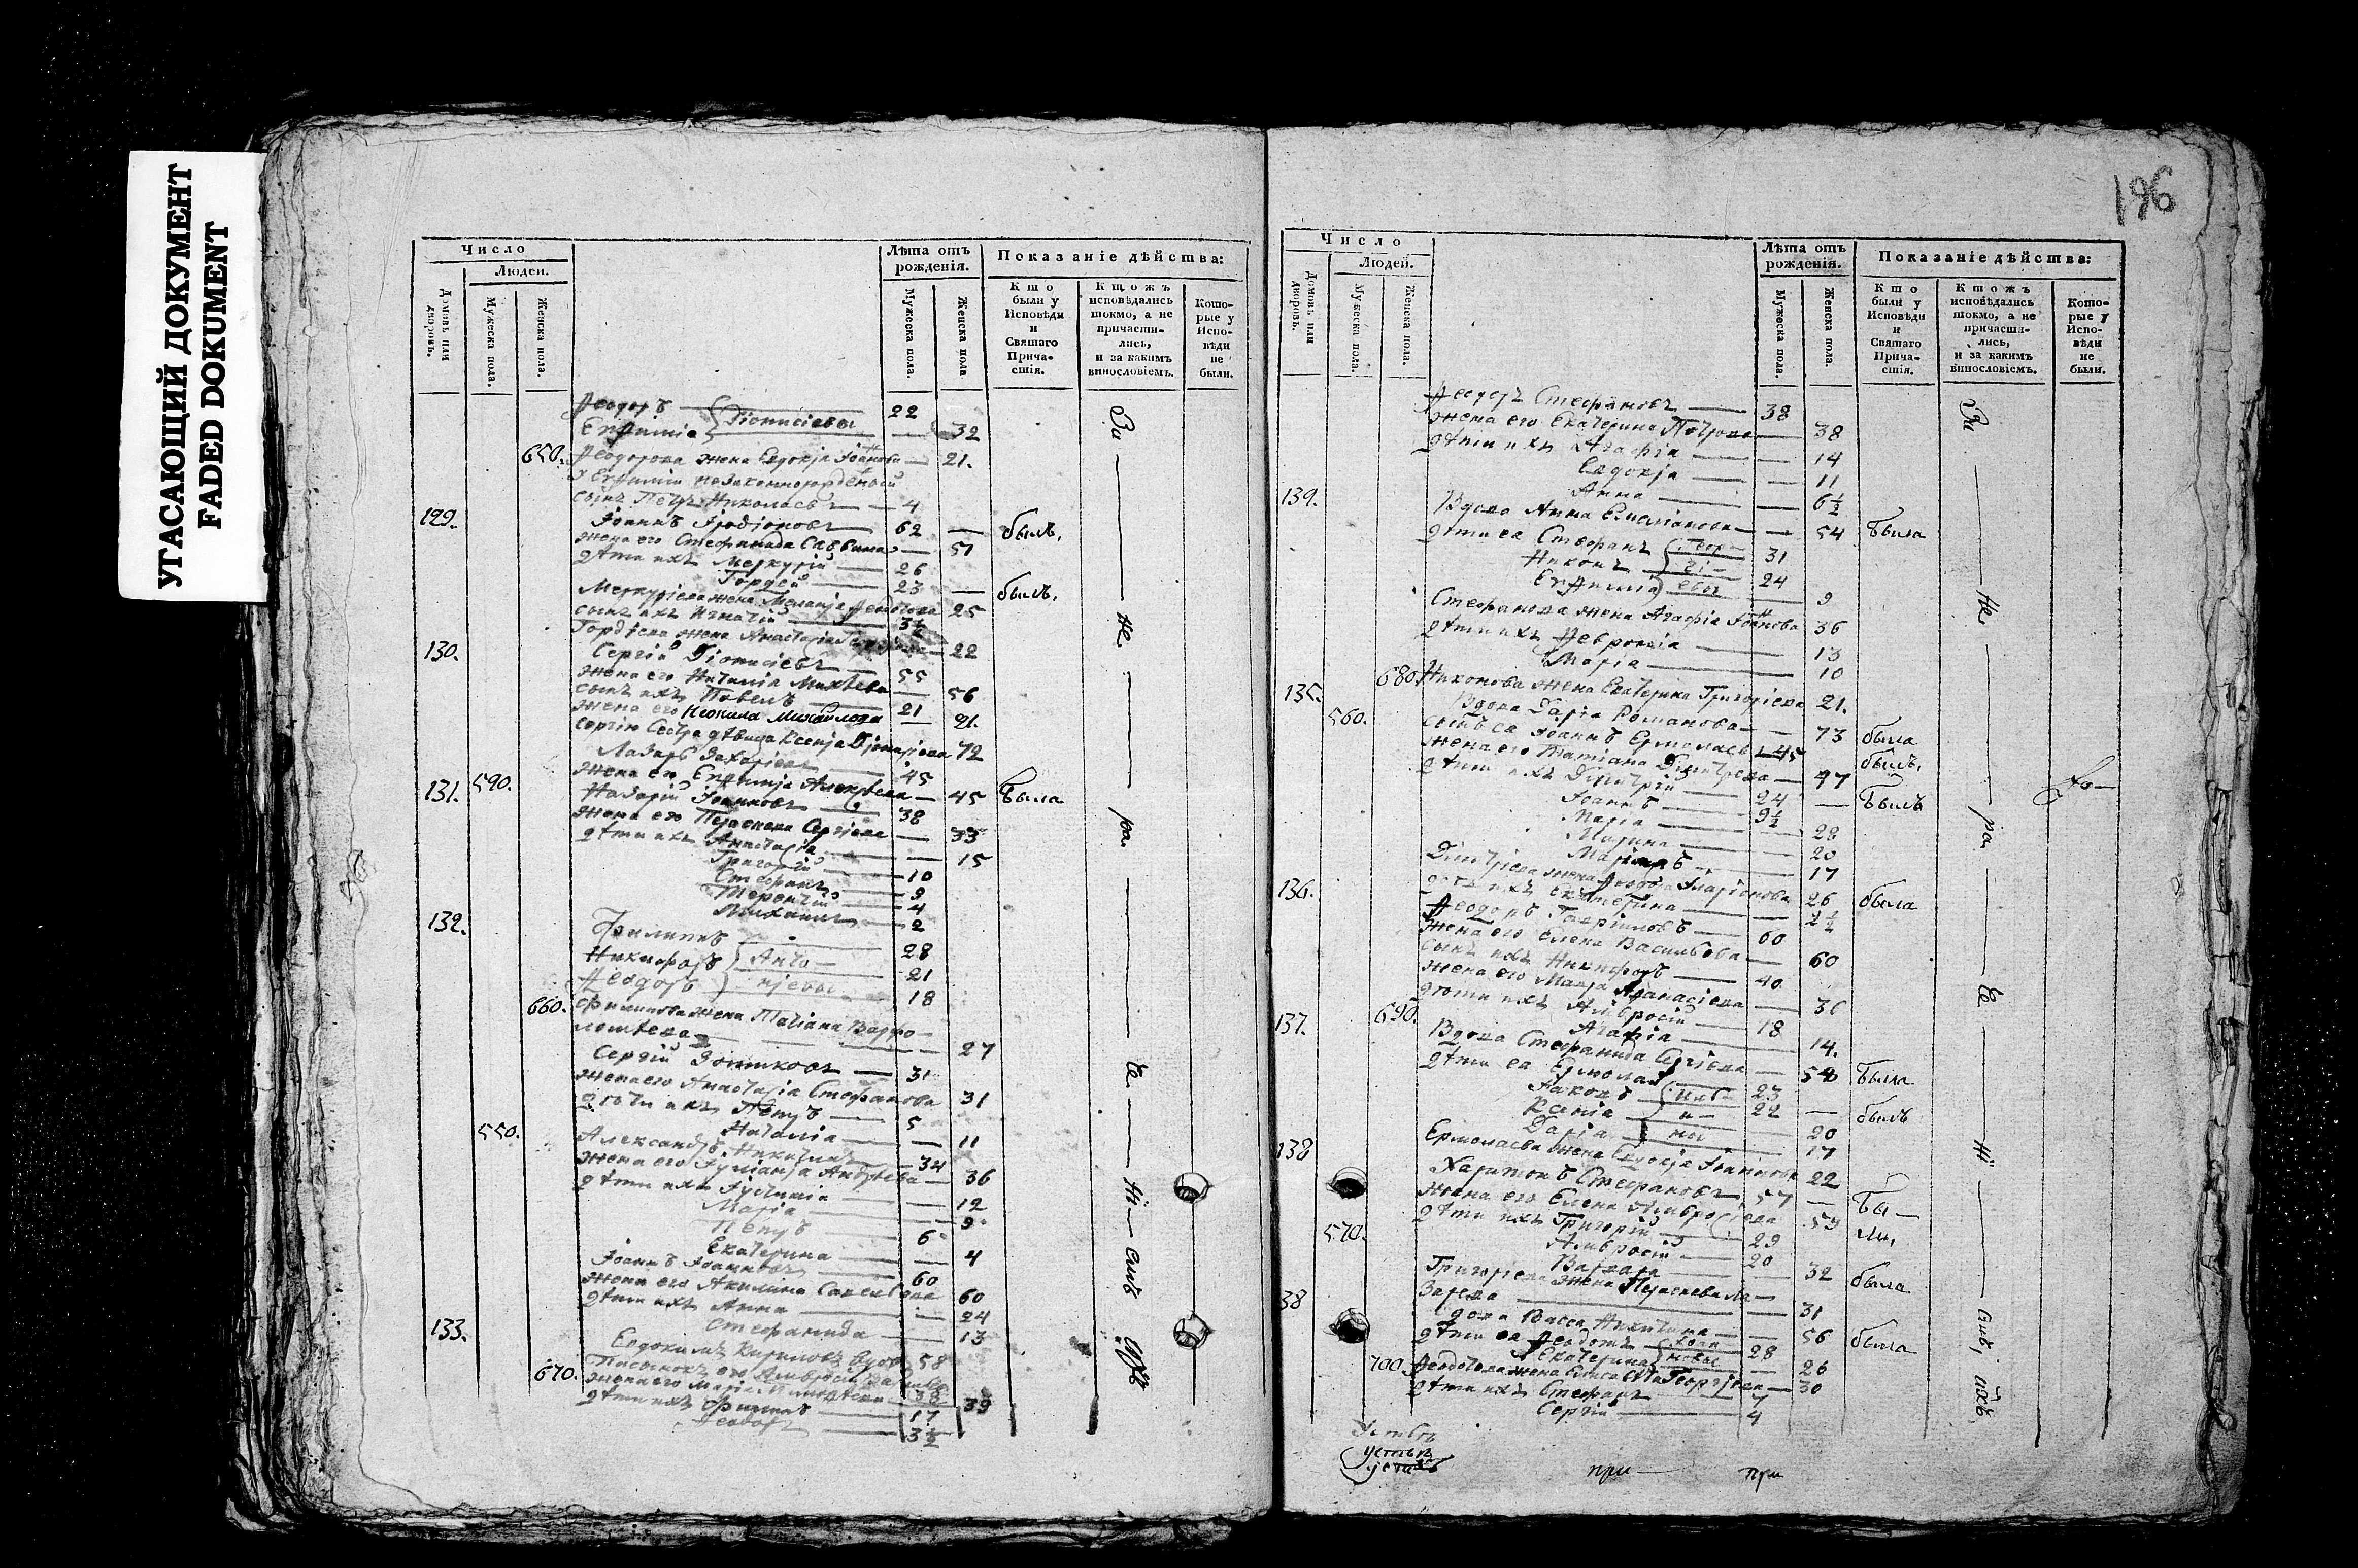 УГАСАЮЩИЙ ДОКУМЕНТ
FADED DOKUMENT
Число
Людей.
Домовъ или дворовъ.
Мужеска пола.
Женска пола.
Лѣта отъ рожденія.
Мужеска пола.
Женска пола
Показаніе дѣйства:
Кто были у Исповѣди и Святаго Причастія.
Ктожъ исповѣдались токмо, а не причастились, и за какимъ винословіемъ.
Которые у Исповѣди не были.
Ѳеодоръ 22
Евѳимія Діонисіевы 32
650. Ѳеодорова жена Евдокія Іоаннова 21.
У Евѳиміи незаконнорожденный
сынъ Петръ Николаевъ 4
129. Іоаннъ Иродіоновъ 62 былъ.
жена его Стефанида Саввина 51
дѣти ихъ Меркурій 26
Гордей 23 былъ.
Меркуріева жена Меланія 25
сынъ ихъ Игнатій 3½
Гордіева жена Анастасія 22
130. Сергій Діонисіевъ 55
жена его Наталія Михѣева 56
сынъ ихъ Павелъ 21
жена его Неонила Михайлова 21.
Сергію сестра дѣвица Ксенія Діонисіева 42
Лазарь Захаріевъ 45
131. 590. жена его Евѳимія Алексѣева 45 была
Назарій Іоанновъ 38
жена его Параскева Сергіева 33
дѣти ихъ Анастасія 15
Григорій 10
Стефанъ 9
Терентій 4
Михаилъ 2
132. Филиппъ 28
Никифоръ Анто- 21
Ѳеодоръ ніевы 18
660. Филиппова жена Татіана Варѳо-
ломѣева 27
Сергій Зотиковъ 31
жена его Анастасія Стефанова 31
дѣти ихъ Петръ 5
Наталія 11
550. Александръ Никитинъ 34
жена его Іуліанія Андреева 36
дѣти ихъ Іустинія 12
Марія 9
Петръ 6
Екатерина 4
Іоаннъ Іоанновъ 60
жена его Акилина Савельева 60
дѣти ихъ Анна 24
Стефанида 13
133. Евдокимъ Кириловъ вдовъ 58
670. Пасынокъ его Амвросій
жена его Марія 39
дѣти ихъ Филиппъ 17
Ѳеодоръ 3½
За не ра че ні емъ ихъ
196
Число
Людей.
Домовъ или дворовъ.
Мужеска пола.
Женска пола.
Лѣта отъ рожденія.
Мужеска пола.
Женска пола.
Показаніе дѣйства:
Кто были у Исповѣди и Святаго Причастія.
Ктожъ исповѣдались токмо, а не причастились, и за какимъ винословіемъ.
Которые у Исповѣди не были.
Ѳеодоръ Стефановъ 38
жена его Екатерина Петрова 38
дѣти ихъ Агафія 14
Евдокія 11
Анна 6½
139. Вдова Анна Емеліанова 54 была
дѣти ея Стефанъ Геор- 31
Никонъ гі- 24
Евѳимія евы 9
Стефанова жена Агафія Іоаннова 36
дѣти ихъ Ѳевронія 13
Марія 10
680. Никонова жена Екатерина Григоріева 21.
135. Вдова Дарія Романова 73 была
560. сынъ ея Іоаннъ Ермолаевъ 45 былъ.
жена его Татіана Димитріева 47
дѣти ихъ Димитрій 24 былъ
Іоаннъ 9½
Марія 28
Марина 20
17
Димитріева жена Иларіонова 26 была
136. дочь ихъ Екатерина 2½
Ѳеодоръ Гавріиловъ 60
жена его Елена Васильева 60
сынъ ихъ Никифоръ 40
жена его Мавра Аѳанасіева 36
690. дѣти ихъ Амвросій 18
137. Агафія 14.
Вдова Стефанида Сергіева 54 была
дѣти ея Ермолай 23
Іаковъ 22 былъ
Ксенія 20
Дарія 17
138 Ермолаева жена Евдокія Іоаннова 22
Харитонъ Стефановъ 57 бы-
жена его Елена Амвросіева 59 ли,
570. дѣти ихъ Григорій 29
Амвросій 20
Варвара 32 была
Григоріева жена Параскева Ла-
38 зарева 31
Вдова Васса Никитина 56 была
дѣти ея Ѳеодотъ 28
Екатерина 26
700. Ѳеодотова жена Елисавета Георгіева 30
дѣти ихъ Стефанъ 7
Сергій 4
За не ра че ні емъ, ихъ
при при